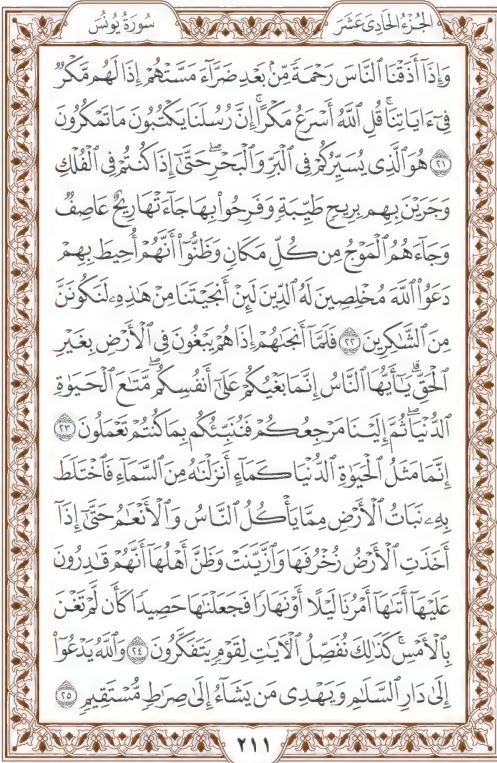 الجُزْءُ الحَادِىَ عَشَرَ
سُورَةُ يُونُسَ
وَإِذَآ أَذَقْنَا ٱلنَّاسَ رَحْمَةً مِّنۢ بَعْدِ ضَرَّآءَ مَسَّتْهُمْ إِذَا لَهُم مَّكْرٌ
فِىٓ ءَايَاتِنَاۚ قُلِ ٱللَّهُ أَسْرَعُ مَكْرًاۚ إِنَّ رُسُلَنَا يَكْتُبُونَ مَا تَمْكُرُونَ
٢١ هُوَ ٱلَّذِى يُسَيِّرُكُمْ فِى ٱلْبَرِّ وَٱلْبَحْرِۖ حَتَّىٰٓ إِذَا كُنتُمْ فِى ٱلْفُلْكِ
وَجَرَيْنَ بِهِم بِرِيحٍ طَيِّبَةٍ وَفَرِحُوا۟ بِهَا جَآءَتْهَا رِيحٌ عَاصِفٌ
وَجَآءَهُمُ ٱلْمَوْجُ مِن كُلِّ مَكَانٍ وَظَنُّوٓا۟ أَنَّهُمْ أُحِيطَ بِهِمْ
دَعَوُا۟ ٱللَّهَ مُخْلِصِينَ لَهُ ٱلدِّينَ لَئِنْ أَنجَيْتَنَا مِنْ هَٰذِهِۦ لَنَكُونَنَّ
مِنَ ٱلشَّٰكِرِينَ ٢٢ فَلَمَّآ أَنجَىٰهُمْ إِذَا هُمْ يَبْغُونَ فِى ٱلْأَرْضِ بِغَيْرِ
ٱلْحَقِّۗ يَٰٓأَيُّهَا ٱلنَّاسُ إِنَّمَا بَغْيُكُمْ عَلَىٰٓ أَنفُسِكُمۖ مَّتَٰعَ ٱلْحَيَوٰةِ
ٱلدُّنْيَاۖ ثُمَّ إِلَيْنَا مَرْجِعُكُمْ فَنُنَبِّئُكُم بِمَا كُنتُمْ تَعْمَلُونَ ٢٣
إِنَّمَا مَثَلُ ٱلْحَيَوٰةِ ٱلدُّنْيَا كَمَآءٍ أَنزَلْنَٰهُ مِنَ ٱلسَّمَآءِ فَٱخْتَلَطَ
بِهِۦ نَبَاتُ ٱلْأَرْضِ مِمَّا يَأْكُلُ ٱلنَّاسُ وَٱلْأَنْعَٰمُ حَتَّىٰٓ إِذَآ
أَخَذَتِ ٱلْأَرْضُ زُخْرُفَهَا وَٱزَّيَّنَتْ وَظَنَّ أَهْلُهَآ أَنَّهُمْ قَٰدِرُونَ
عَلَيْهَآ أَتَىٰهَآ أَمْرُنَا لَيْلًا أَوْ نَهَارًا فَجَعَلْنَٰهَا حَصِيدًا كَأَن لَّمْ تَغْنَ
بِٱلْأَمْسِۚ كَذَٰلِكَ نُفَصِّلُ ٱلْءَايَٰتِ لِقَوْمٍ يَتَفَكَّرُونَ ٢٤ وَٱللَّهُ يَدْعُوٓا۟
إِلَىٰ دَارِ ٱلسَّلَٰمِ وَيَهْدِى مَن يَشَآءُ إِلَىٰ صِرَٰطٍ مُّسْتَقِيمٍ ٢٥
٢١١